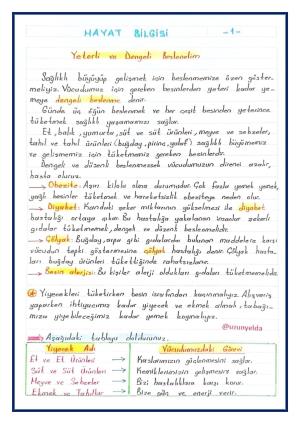 HAYAT BİLGİSİ -1-
Yeterli ve Dengeli Beslenelim
Sağlıklı büyüyüp gelişmek için beslenmemize özen göster-
meliyiz. Vücudumuz için gereken besinlerden yeteri kadar ye-
meye dengeli beslenme denir.
Günde üç öğün beslenmek ve her çeşit besinden yeterince
tüketmek sağlıklı yaşamamızı sağlar.
Et, balık, yumurta, süt ve süt ürünleri, meyve ve sebzeler,
tahıl ve tahıl ürünleri (buğday, pirinç, yulaf) sağlıklı büyümemiz
ve gelişmemiz için tüketmemiz gereken besinlerdir.
Dengeli ve düzenli beslenmezsek vücudumuzun direnci azalır,
hasta oluruz.
Obezite: Aşırı kilolu olma durumudur. Çok fazla yemek yemek,
yağlı besinler tüketmek ve hareketsizlik obeziteye neden olur.
Diyabet: Kandaki şeker miktarının yükselmesi ile diyabet
hastalığı ortaya çıkar. Bu hastalığa yakalanan insanlar şekerli
gıdalar tüketmemeli, dengeli ve düzenli beslenmelidir.
Çölyak: Buğday, arpa gibi gıdalarda bulunan maddelere karşı
vücudun tepki göstermesine çölyak hastalığı denir. Çölyak hasta-
ları buğday ürünleri tükettiğinde rahatsızlanır.
Besin alerjisi: Bu kişiler alerji oldukları gıdaları tüketmemelidir.
Yiyecekleri tüketirken besin israfından kaçınmalıyız. Alışveriş
yaparken ihtiyacımız kadar yiyecek ve ekmek almalı, tabağı-
mızı yiyebileceğimiz kadar yemek koymalıyız.
@urunyelda
Aşağıdaki tabloyu doldurunuz.
Yiyecek Adı Vücudumuzdaki Görevi
Et ve Et Ürünleri Kaslarımızın güçlenmesini sağlar.
Süt ve Süt Ürünleri Kemiklerimizin gelişmesini sağlar.
Meyve ve Sebzeler Bizi hastalıklara karşı korur.
Ekmek ve Tahıllar Bize güç ve enerji verir.